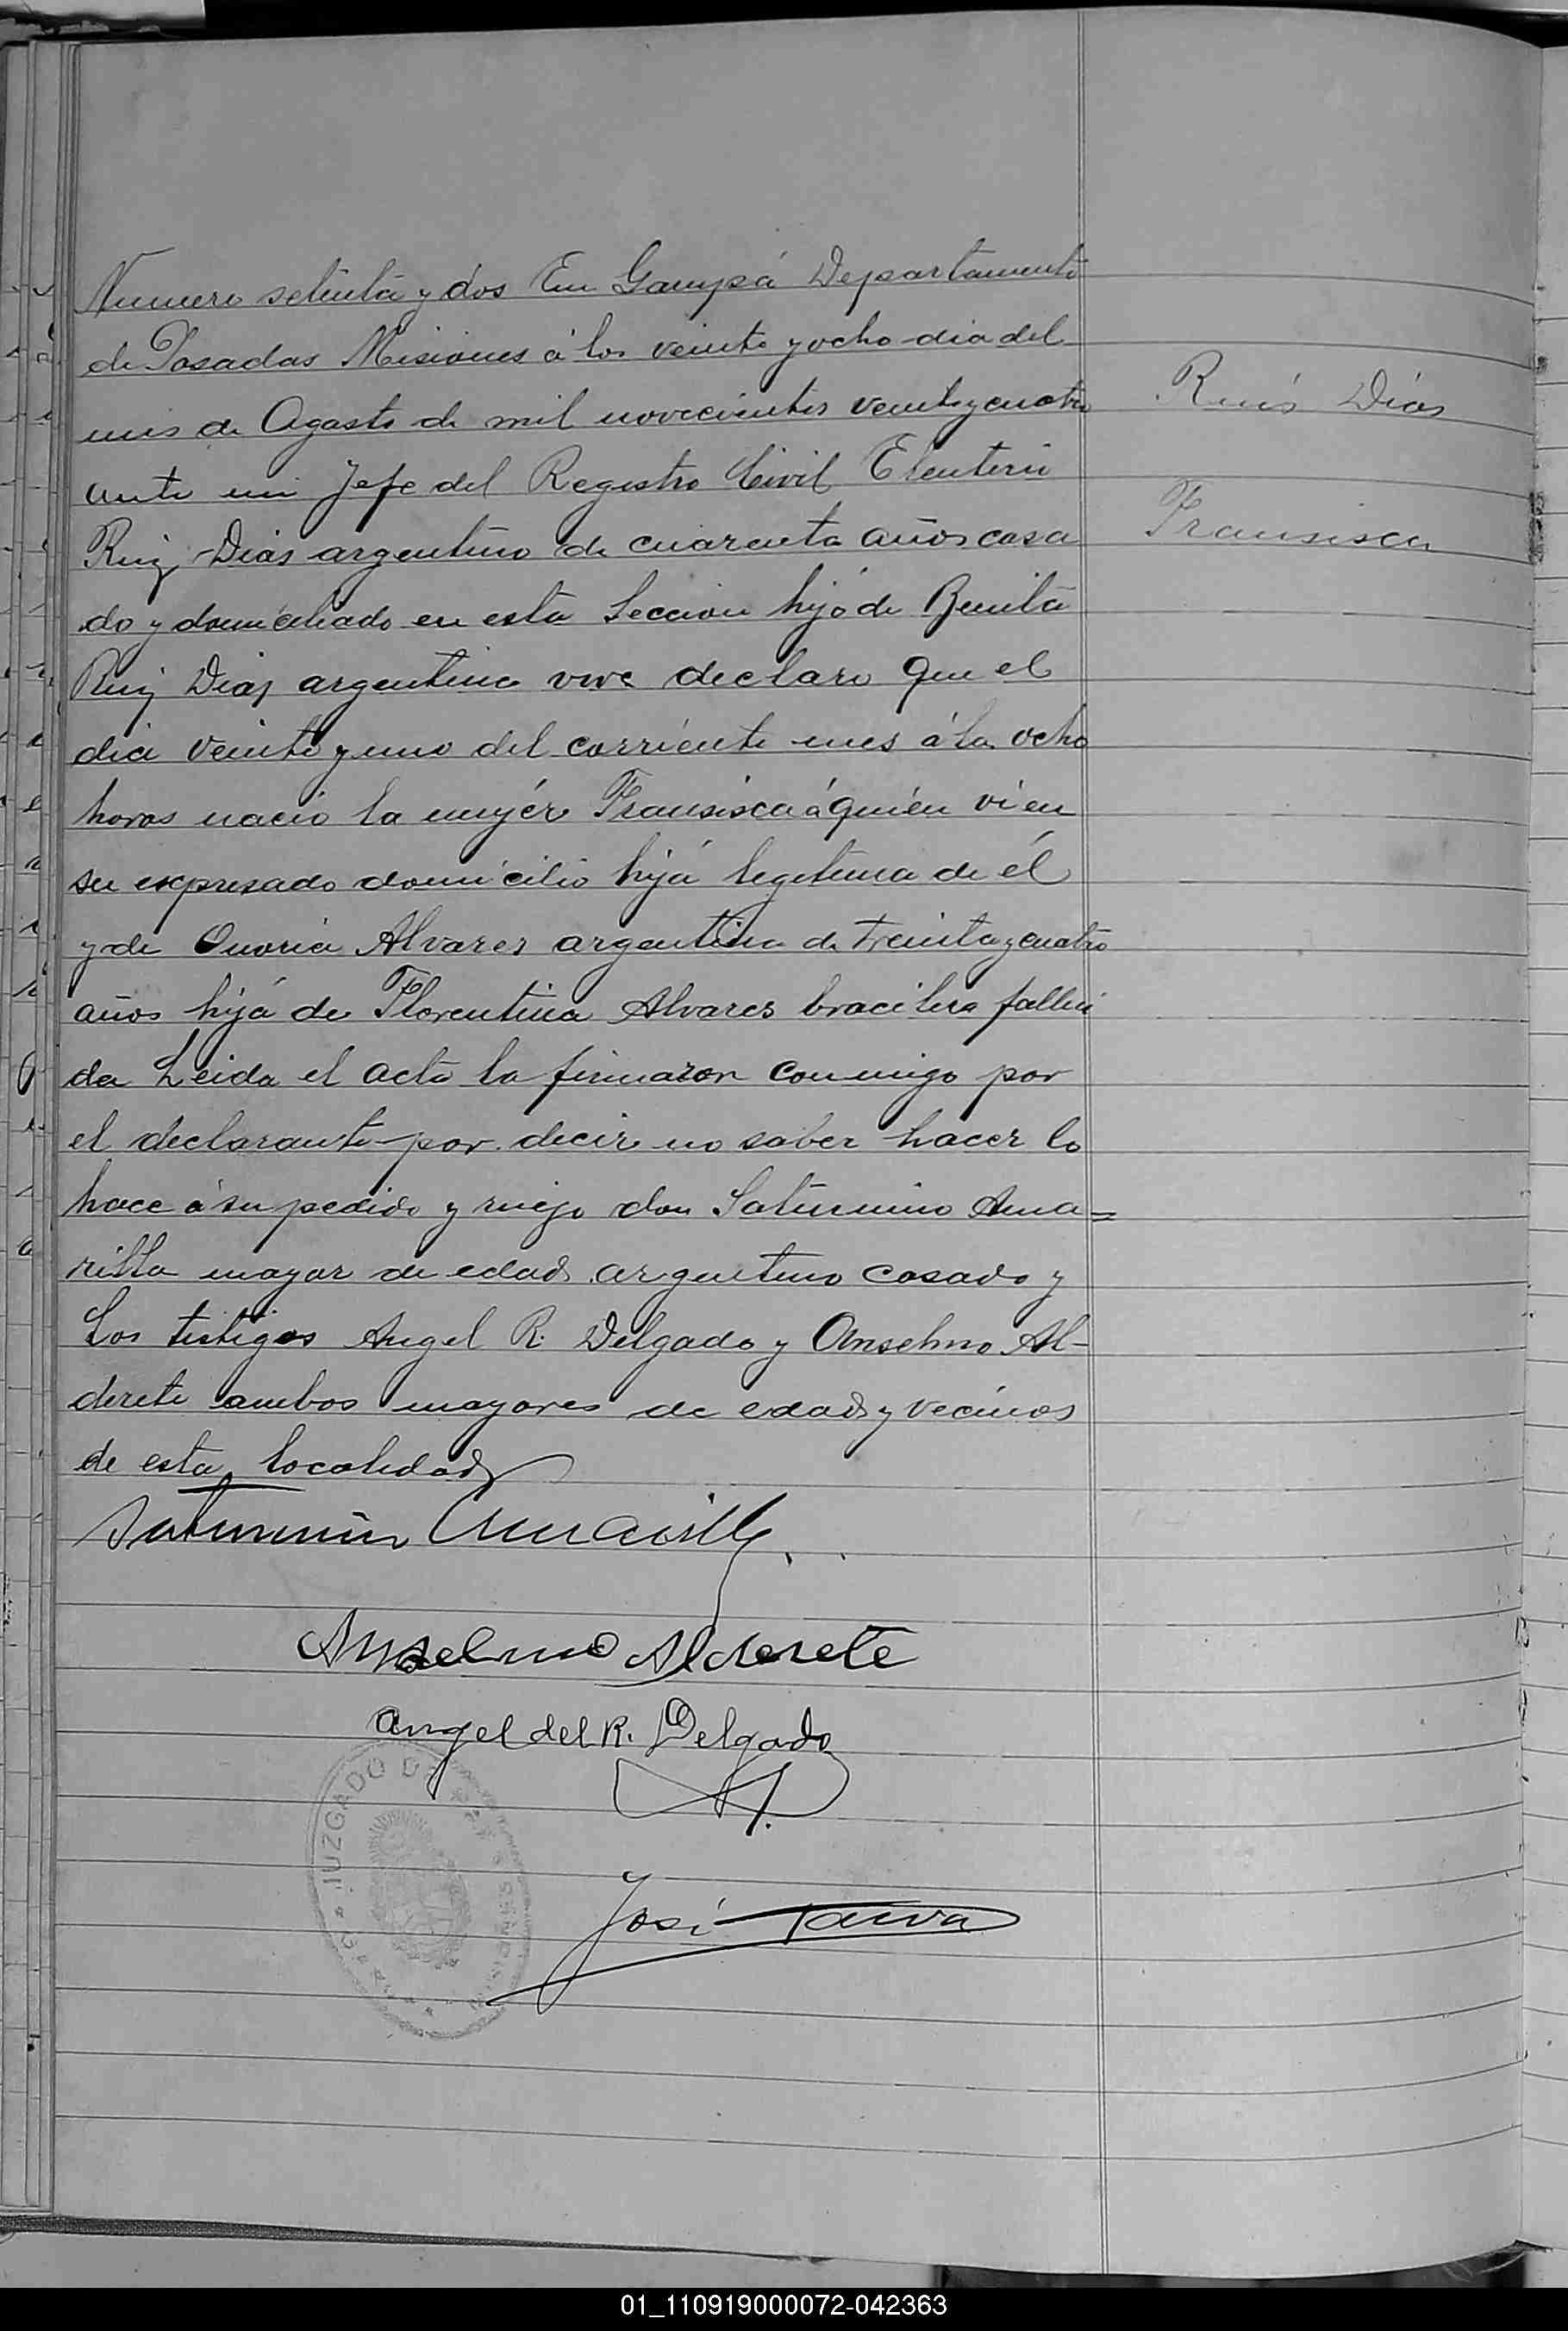 Numero setenta y dos En Garupá Departamento
de Posadas Misiones á los veinte y ocho dia del
mes de Agosto de mil novecientos veinte y cuatro
ante mi Jefe del Registro Civil Eleuterio
Ruiz Dias argentino de cuarenta años casa
do y domiciliado en esta Seccion hijo de Benita
Ruiz Diaz argentina vive declaro que el
dia veinte y uno del corriente mes á las ocho
horas nacio la mujér Fransisca á quién vi en
su expresado domicilio hijá legitima de él
y de Onoria Alvares argentina de treinta y cuatro
años hijá de Florentina Alvares bracilera falleci
da Leida el acta la firmaron conmigo por
el declarante por decir no saber hacer lo
hace á su pedido y ruego don Saturnino Ama=
rilla mayor de edad argentino casado y
los testigos Angel R. Delgado y Anselmo Al-
derete ambos mayores de edad y vecinos
de esta localidad
Ruis Dias
Fransisca
Saturnino Amarilla
Anselmo Alderete
Angel del R. Delgado
José Paiva
JUZGADO DE PAZ
MISIONES
01_110919000072-042363